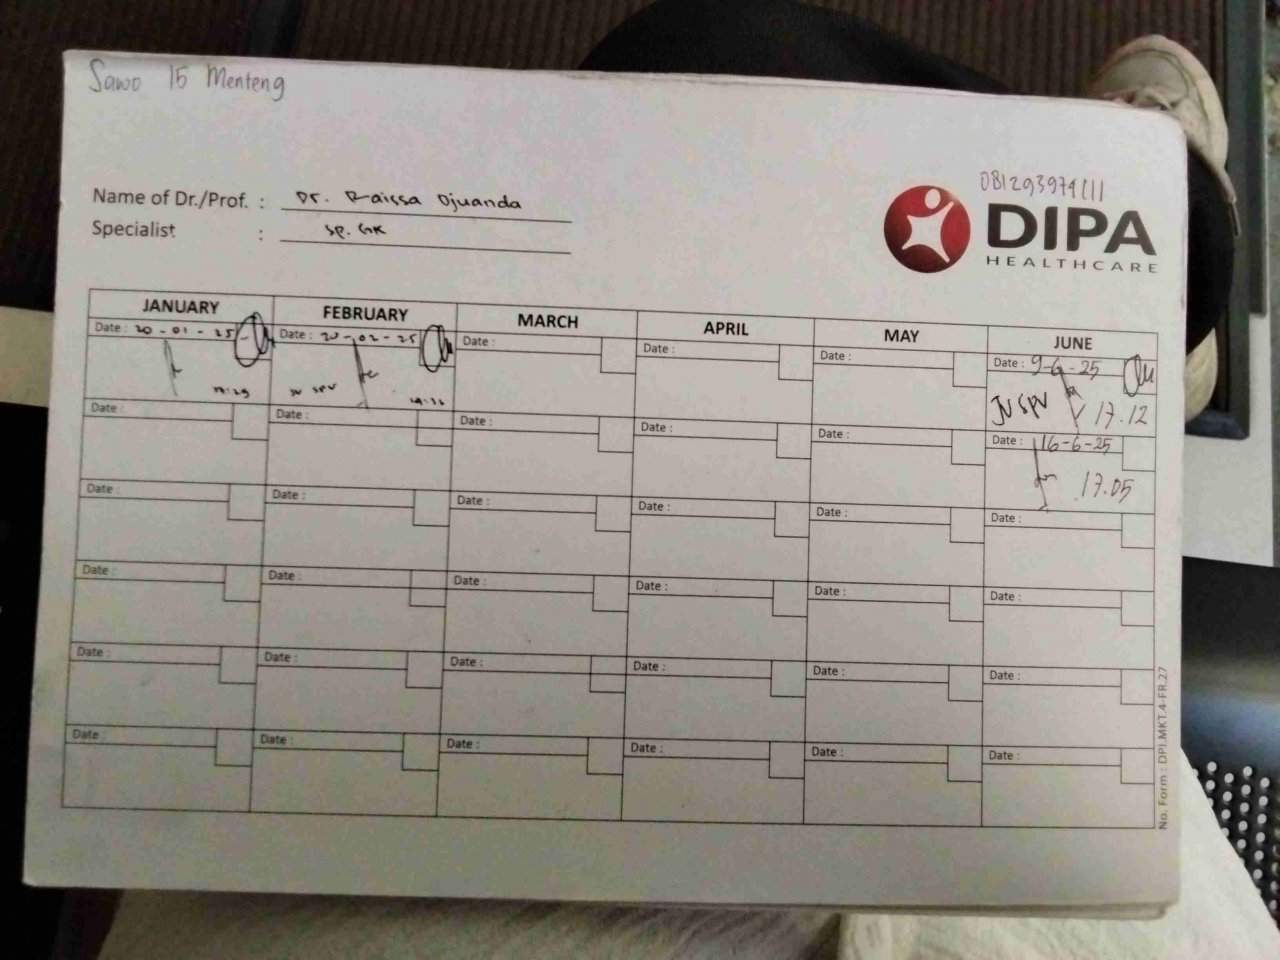 Sawo 15 Menteng
Name of Dr./Prof. : Dr. Raissa Djuanda
Specialist : Sp. GK
DIPA
HEALTHCARE
JANUARY FEBRUARY MARCH APRIL MAY JUNE
Date : 20-01-25 Date : 20-02-25 Date : Date : Date : Date : 9-6-25
JV SPV JV SPV 17.12
Date : Date : Date : Date : Date : Date : 16-6-25
17.05
Date : Date : Date : Date : Date : Date :
Date : Date : Date : Date : Date : Date :
Date : Date : Date : Date : Date : Date :
Date : Date : Date : Date : Date : Date :
No. Form : DPI.MKT.4-FR.27